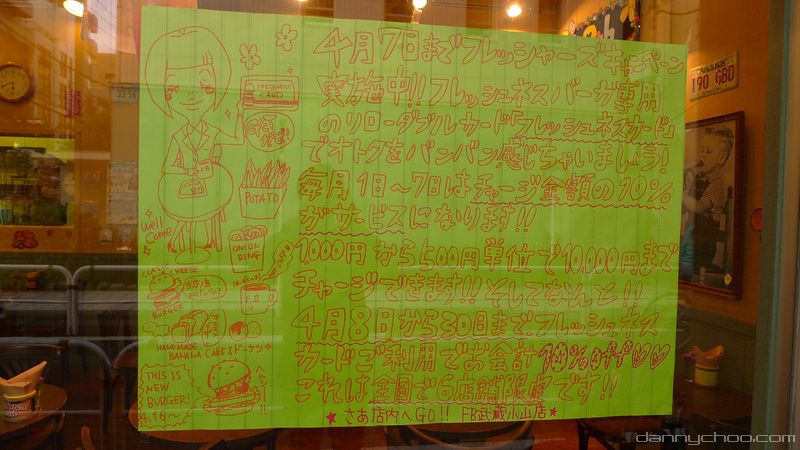 4月7日までフレッシャーズキャンペーン
実施中!!フレッシュネスバーガー専用
のリローダブルカード「フレッシュネスカード」
でオトクをバンバン感じちゃいましょう!
毎月1日~7日はチャージ金額の10%
がサービスになります!!
1,000円から500円単位で10,000円まで
チャージできます!!そしてなんと!!
4月8日から30日まで、フレッシュネス
カードご利用でお会計10%OFF♡♡
これは全国で6店舗限定です!!
★さあ店内へGO!! FB武蔵小山店★
FRESHNESS
CARD
POTATO
Well
Come
ONION
RING
CLASSIC CHEESE
BURGER
FB
HANDMADE
BANANA CAKE&ドーナツ
THIS IS
NEW
BURGER!
4.16~
190 GBD
dannychoo.com